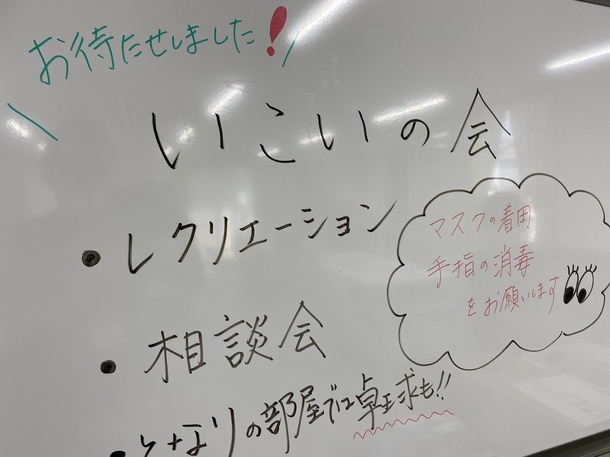 お待たせしました!
いこいの会
・レクリエーション
マスクの着用
手指の消毒
をお願いします
・相談会
・となりの部屋では卓球も!!